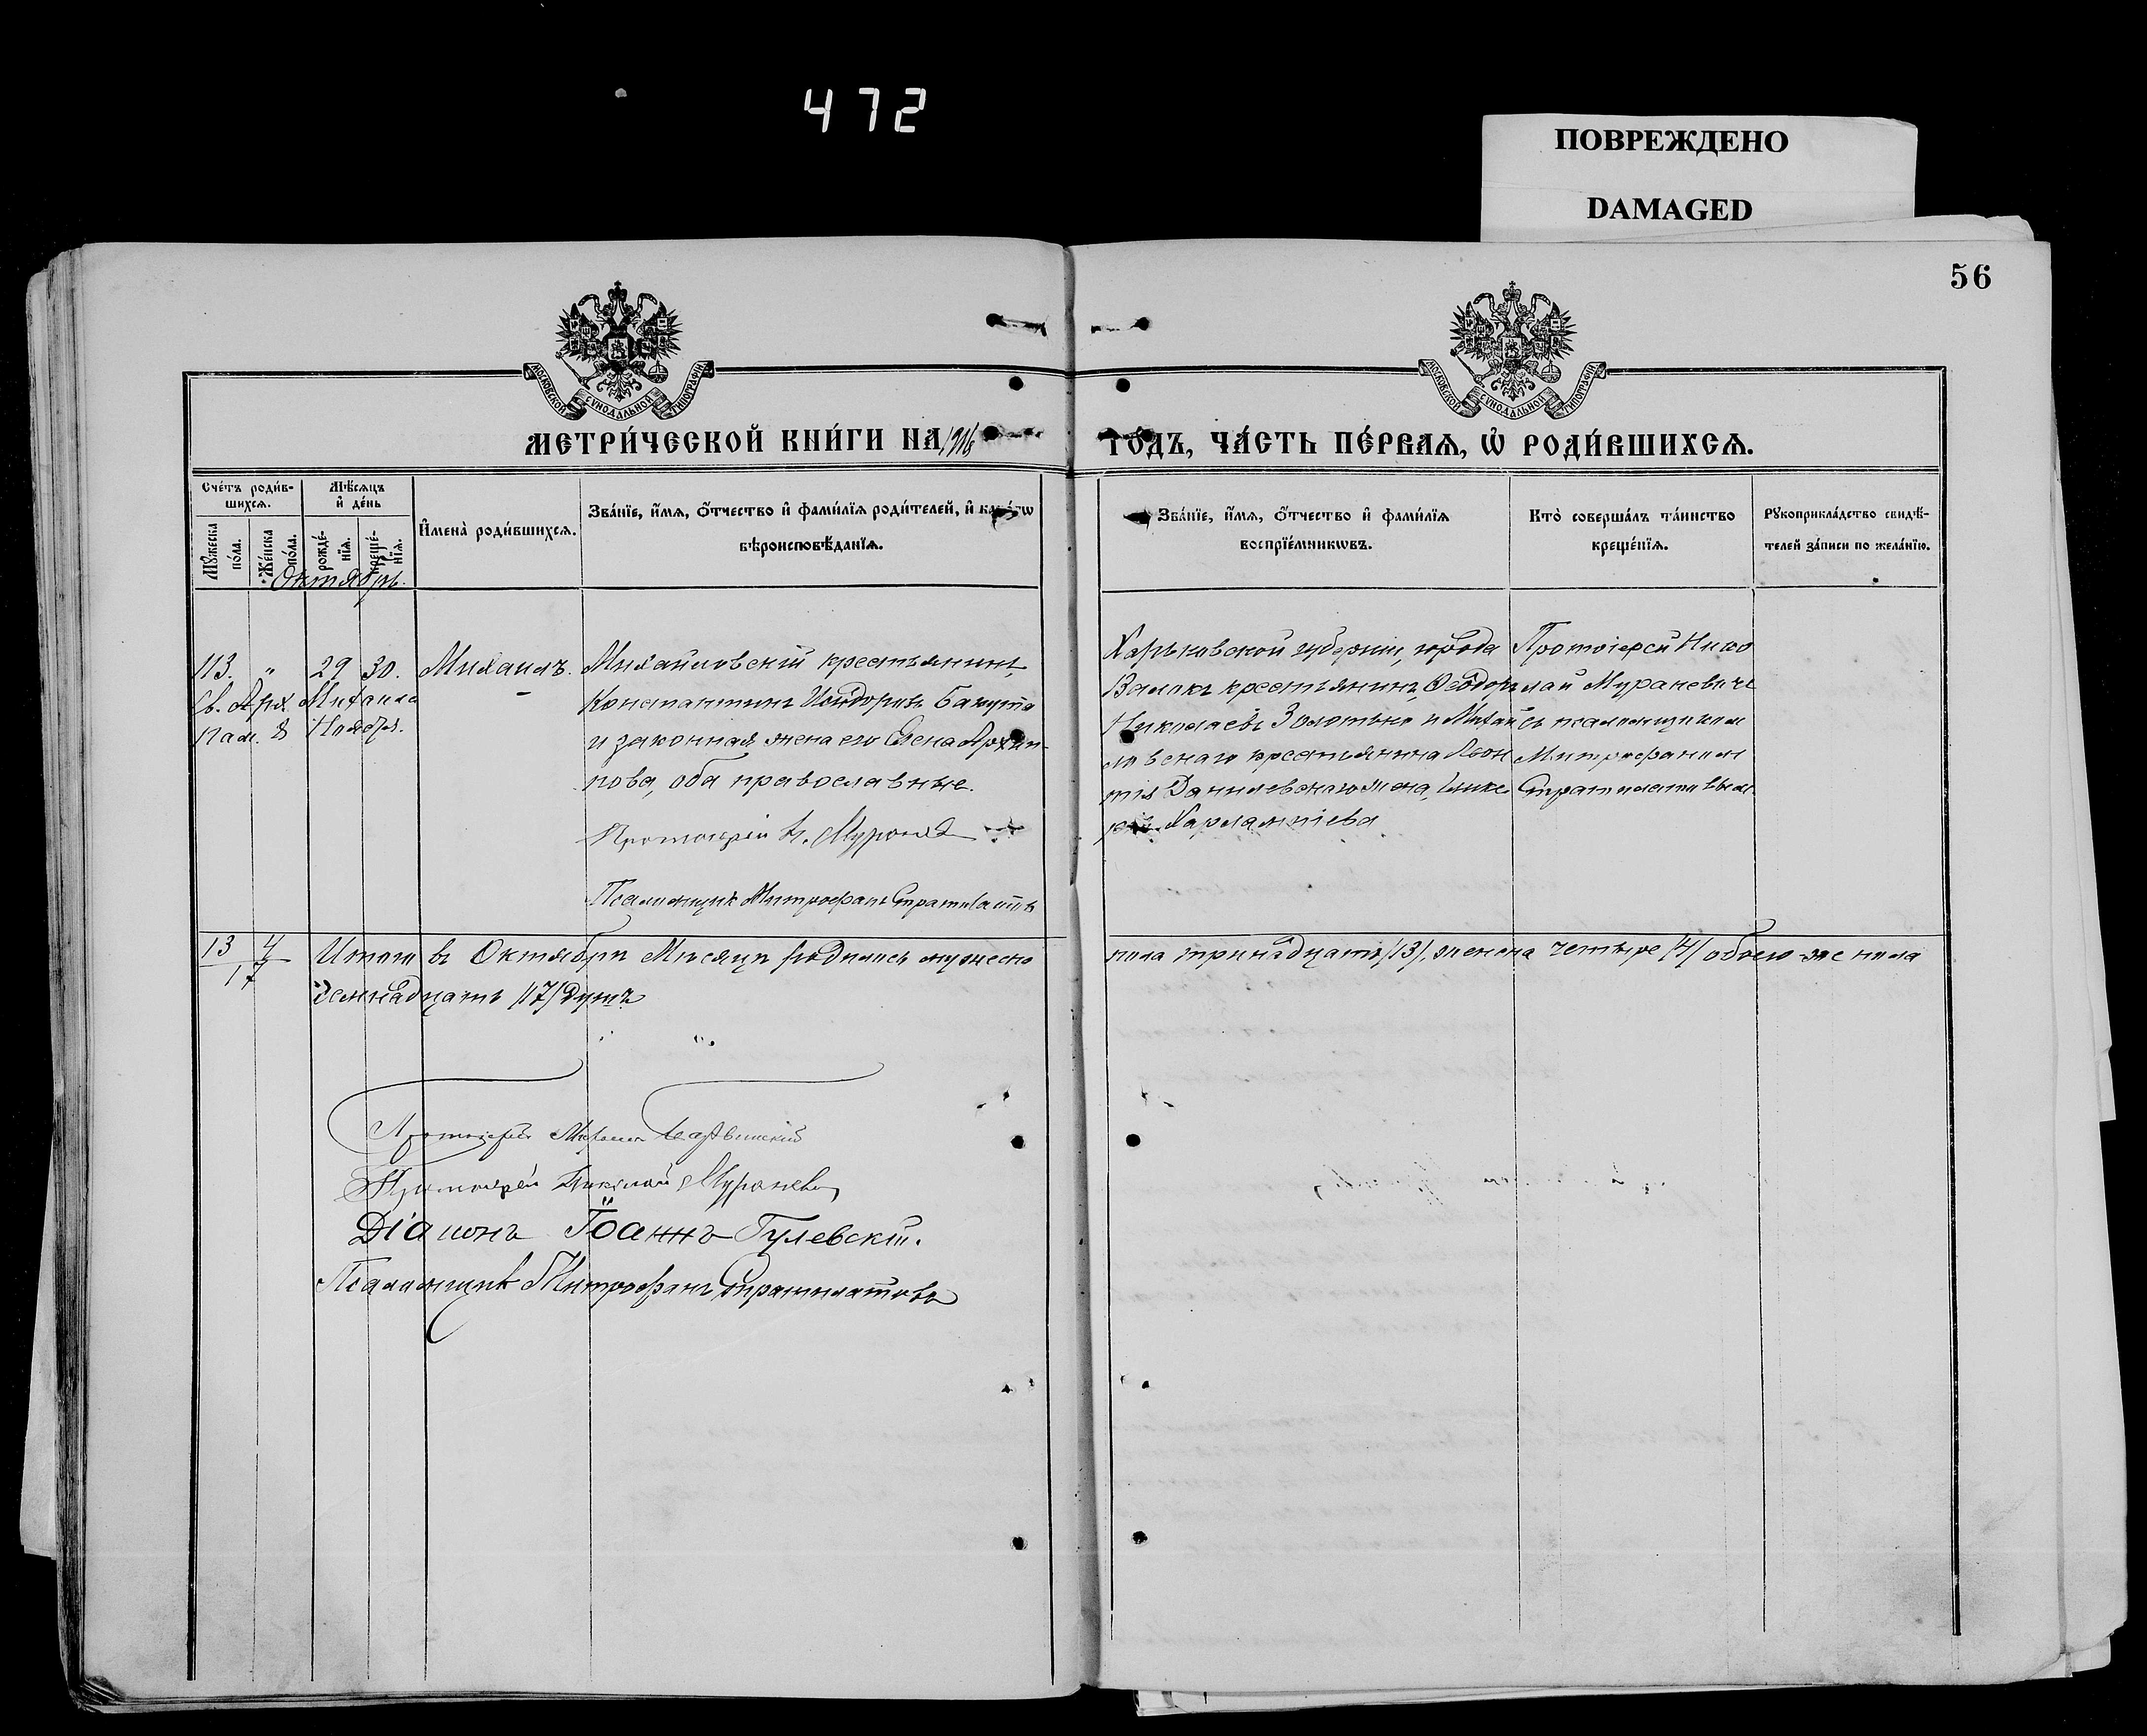 472
ПОВРЕЖДЕНО
DAMAGED
56
МОСКОВСКОЙ СУНОДАЛЬНОЙ ТИПОГРАФІИ
МОСКОВСКОЙ СУНОДАЛЬНОЙ ТИПОГРАФІИ
МЕТРИ́ЧЕСКОЙ КНИ́ГИ НА 1916
ГО́ДЪ, ЧА́СТЬ ПЕ́РВАѦ, Ѡ РОДИ́ВШИХСѦ.
Сче́тъ роди́в-
шихсѧ.
Мѣ́сѧцъ
и҆ де́нь
Мꙋ́жеска по́ла.
Же́нска по́ла.
рожде́-нїѧ.
креще́-нїѧ.
И҆мена̀ роди́вшихсѧ.
Зва́нїе, и҆́мѧ, ѻ҆́тчество и҆ фами́лїѧ роди́телей, и҆ како́гѡ
вѣроисповѣ́данїѧ.
Зва́нїе, и҆́мѧ, ѻ҆́тчество и҆ фами́лїѧ
воспрїе́мникѡвъ.
Кто̀ соверша́лъ та́инство
креще́нїѧ.
Рꙋкоприкла́дство свидѣ́-
телей за́писи по жела́нїю.
Октябрь.
113. " 29 30. Михаилъ.
Св. Арх. Михаила
Пам. 8 Ноября.
Михайловскій крестьянинъ
Константинъ Исидоровъ Бакута
и законная жена его Елена Архип-
пова, оба православные.
Протоіерей Н.
Псаломщикъ Митрофанъ Стратилатовъ
Харьковской губерніи, города
Валокъ крестьянинъ Ѳеодоръ
Николаевъ Золотько и Михай
ловскаго крестьянина Леон
тія Данилевскаго жена, Глике
рія Харлампіева
Протоіерей Нико
лай Мураневичъ
съ псаломщикомъ
Митрофаномъ
Стратилатовымъ
13 4
17
Итого въ Октябрѣ Мѣсяцѣ родилось мужеска
пола тринадцать /13/, женска четыре /4/ обоего же пола
семнадцать /17/ душъ
Протоіерей
Протоіерей Николай Мураневичъ
Діаконъ Іоаннъ Гулевскій.
Псаломщикъ Митрофанъ Стратилатовъ